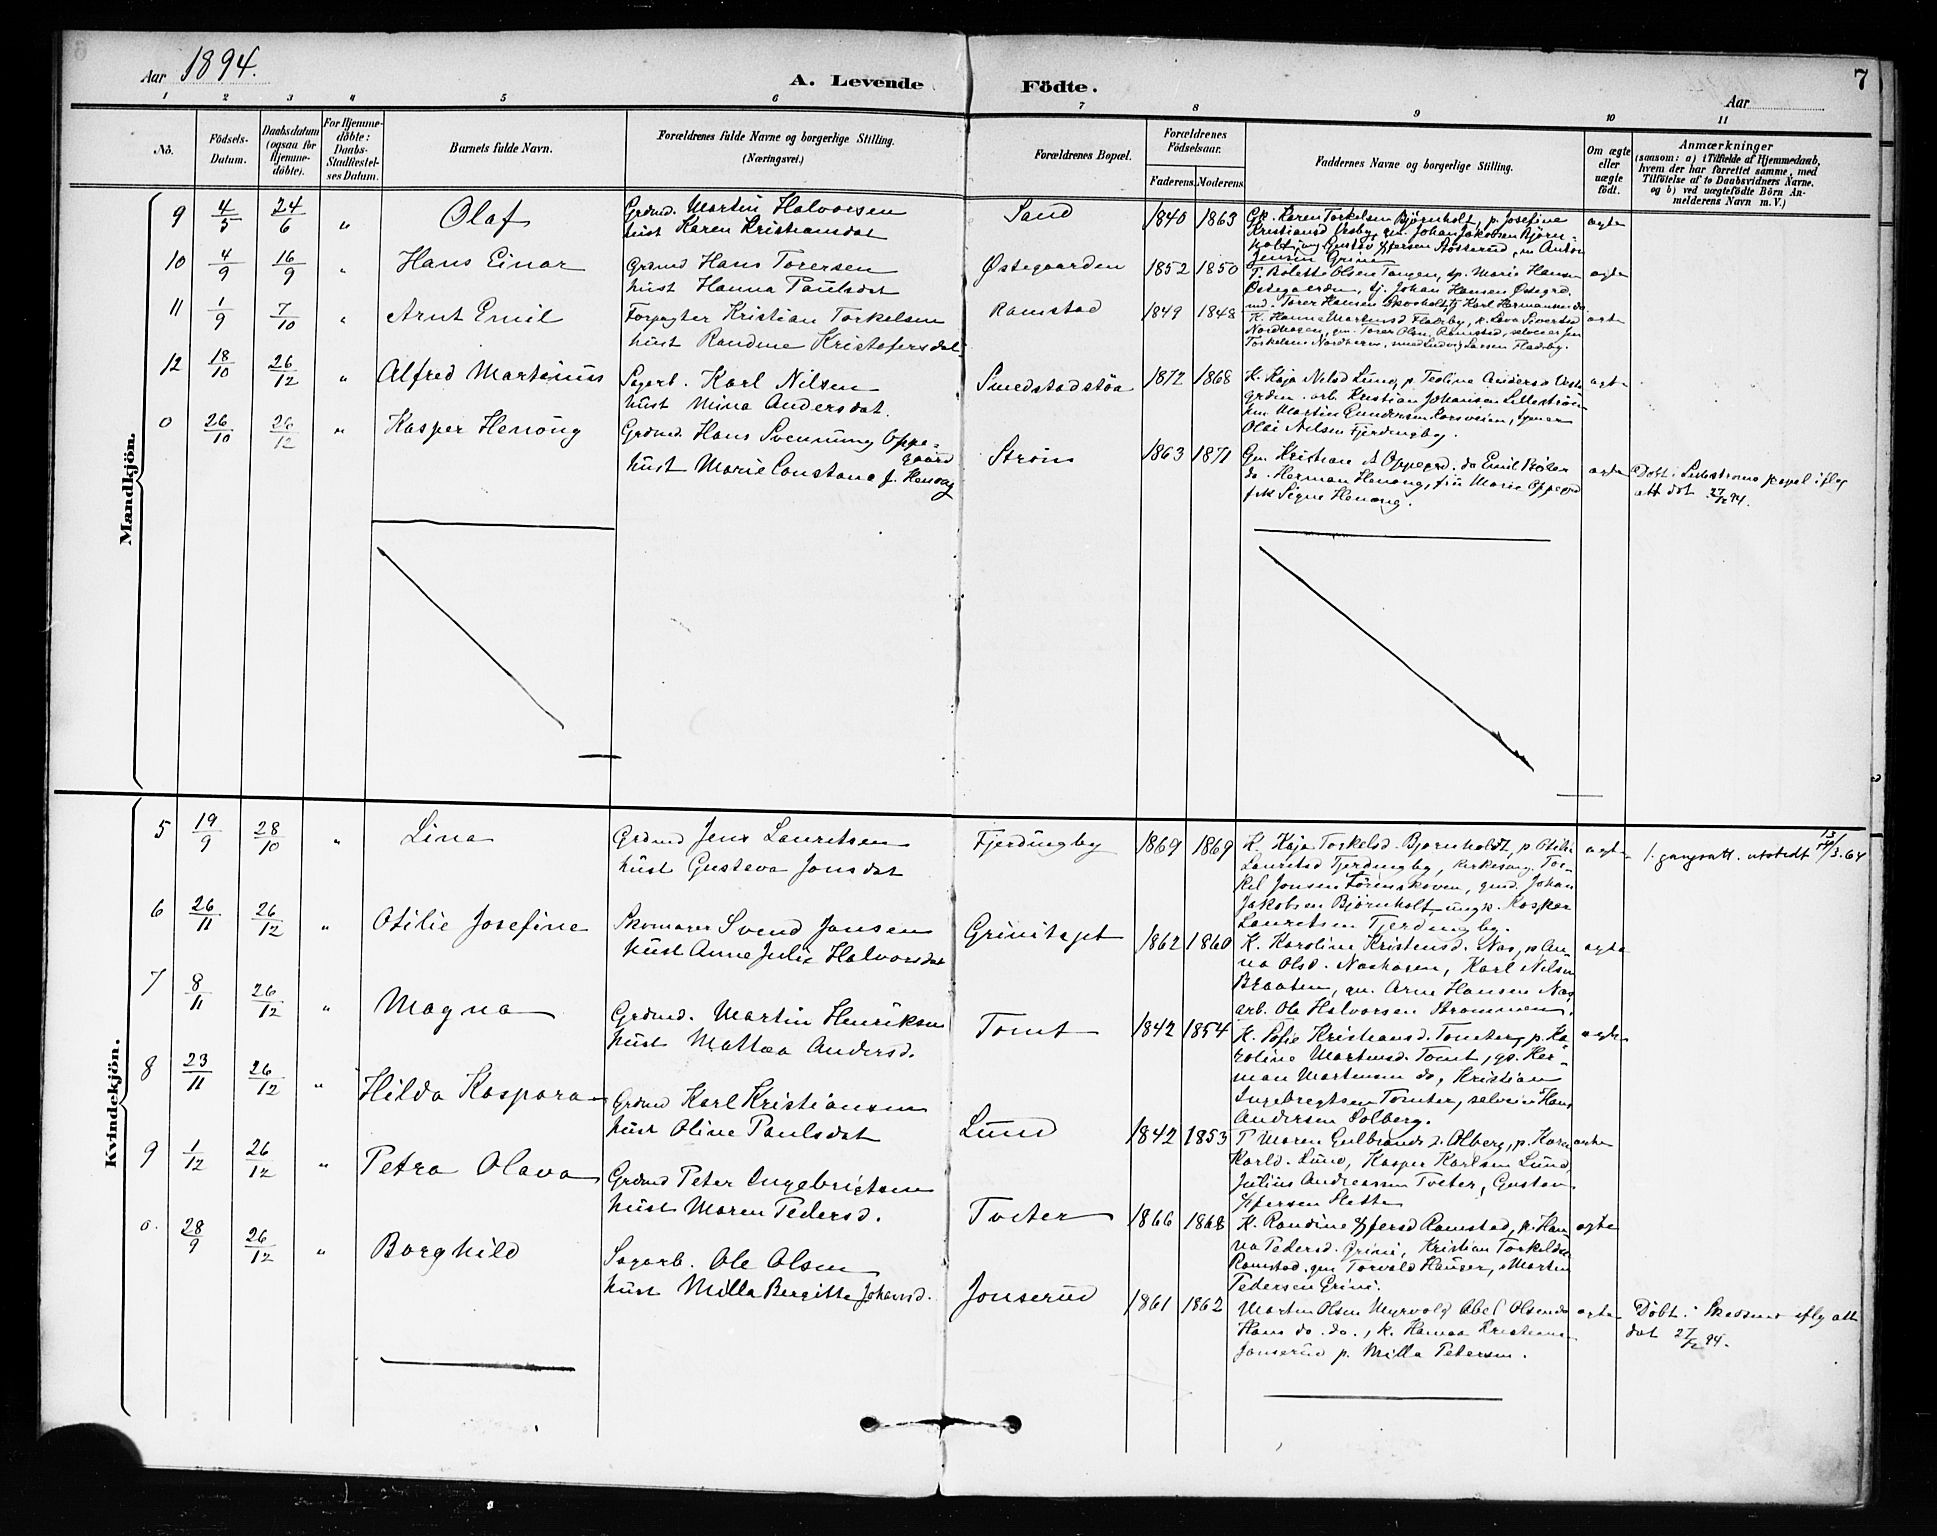 Aar 1894.
A. Levende Födte.
7
Aar
1 2 3 4 5 6 7 8 9 10 11
No.
Födsels-
Datum.
Daabsdatum
(ogsaa for
Hjemme-
döbte).
For Hjemme-
döbte:
Daabs-
Stadfæstel-
ses Datum.
Barnets fulde Navn.
Forældrenes fulde Navne og borgerlige Stilling.
(Næringsvei.)
Forældrenes Bopæl.
Forældrenes
Födselsaar.
Faderens. Moderens.
Faddernes Navne og borgerlige Stilling.
Om ægte
eller
uægte
födt.
Anmærkninger
(saasom: a) i Tilfælde af Hjemmedaab,
hvem der har forrettet samme, med
Tilföielse af to Daabsvidners Navne.
og b) ved uægtefödte Börn An-
melderens Navn m. V.)
Mandkjön.
9 4/5 24/6 " Olaf
Grdmd. Martin Halvorsen
hust Karen Kristiansdat
Sand 1840 1863
Gk. Karen Torkelsen Bjørnholt, p. Josefine
Kristiansd Ursby, gm. Johan Jakobsen Bjørn-
holt, ung Gustav
Jensen Grini
ægte
10 4/9 16/9 " Hans Einar
Grdmd Hans Torersen
hust Hanna Paulsdat
Østegaarden 1852 1850
T. Bolette Olsen Tangen, sp. Marie Hansen
Østegaarden, sj. Johan Hansen Østegrd.
md. Torer Hansen Skosholt, Karl Hermansen do
ægte
11 1/9 7/10 " Arnt Emil
Forpagter Kristian Torkelsen
hust Randine Kristofersdat
Ramstad 1849 1848
K. Hanna Martinsd Fladeby, p. Lova Sivertsd
Nordhagen, gm. Torer Olsn. Ramstad, selveier Jen
Torkelsen Nordhagen, Ludvig Larsen Fladeby.
ægte
12 18/10 26/12 " Alfred Martinius
Sagarb. Karl Nilsen
hust Mina Andersdat.
Smedstadstøa 1872 1868
K. Kaja Nilsd Lund, p. Teoline Andersd Vest-
grden. arb. Kristian Johansen Lillestrøm
hm Martin Gundersen Korsveien, Spnier
Olai Nilsen Fjerdingby.
ægte
0 26/10 26/12 " Kasper Henong
Grdmd. Hans Svenning Oppe-
gaard
hust Marie Constance f. Henong
Strøm 1863 1871
Gm Kristian A Oppegrd. do Emil Røken
do. Herman Henong, fru Marie Oppegrd
frk Signe Henong.
ægte
Døbt i Lillestrøms kapel iflg
att dat 27/12 94.
Kvindekjön.
5 19/9 28/10 " Lina
Grdmd Jens Lauritsen
hust Gusteva Jonsdat
Fjerdingby 1869 1869
K. Kaja Torkelsd. Bjørnholdt, p. Otilie
Lauritsd Fjerdingby, kirkesang. Tor-
kel Jonsen Tørrenskoven, gmd. Johan
Jakobsen Bjørnholt, ungk. Kasper
Lauritsen Fjerdingby.
ægte
1. gangsatt. utstedt 13/3.64
6 26/11 26/12 " Otilie Josefine
Skomaker Svend Jansen
hust Anne Julie Halvorsdat
Grinitajet 1862 1860
K. Karoline Kristensd. Nas, p An-
na Olsd. Nashagen, Karl Nilsen
Braaten, gm. Arne Hansen Nas
arb. Ole Halvorsen Strømmen.
ægte
7 8/11 26/12 " Magna
Grdmd. Martin Henriksen
hust Mattea Andersd.
Tomt 1842 1854
K. Sofie Kristiansd. Tomter, p. Ka
roline Martinsd. Tomt, gp. Her-
man Martinsen do, Kristian
Ingebregtsen Tomter, selveier Hans
Andersen Solberg.
ægte
8 23/11 26/12 " Hilda Kaspara
Grdmd Karl Kristiansen
hust Oline Paulsdat
Lund 1842 1853
T Maren Gulbrandsd. Olberg, p. Karen
Karlsd. Lund, Kasper Karlsen Lund,
Julius Andreassen Tveter, Gustav
ægte
9 1/12 26/12 " Petra Olava
Grdmd Peter Ingebrigtsen
hust Maren Pedersd.
Tveter 1866 1868
K. Randine Ramstad, p. Han-
na Pedersd. Grini, Kristian Torkelds
Ramstad, gm Torvald Hauger, Martin
Pedersen Grini.
ægte
0. 28/9 26/12 " Borghild
Sagarb. Ole Olsen
hust Milla Bergitte Johansd.
Jonserud 1861 1862
Martin Olsen Myrvold Abel Olsen do
Hans do. do., k. Hanna Kristians
Jonserud p. Milla Petersen.
ægte
Døbt i Skedsmo iflg att
dat 27/12 94.